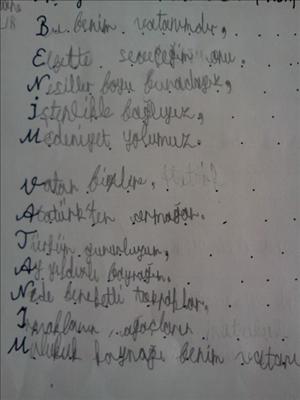 Bu benim vatanımdır,
Elbette seveceğim onu.
Nesiller boyu buradayız,
İstenlikle bağlıyız,
Medeniyet yolumuz.
Vatan bizlere,
Atatürk'ten armağan.
Türkün gururusun,
Ay yıldızlı bayrağın.
Nede bereketli topraklar,
ağaçların
Mutluluk kaynağı benim vatanım